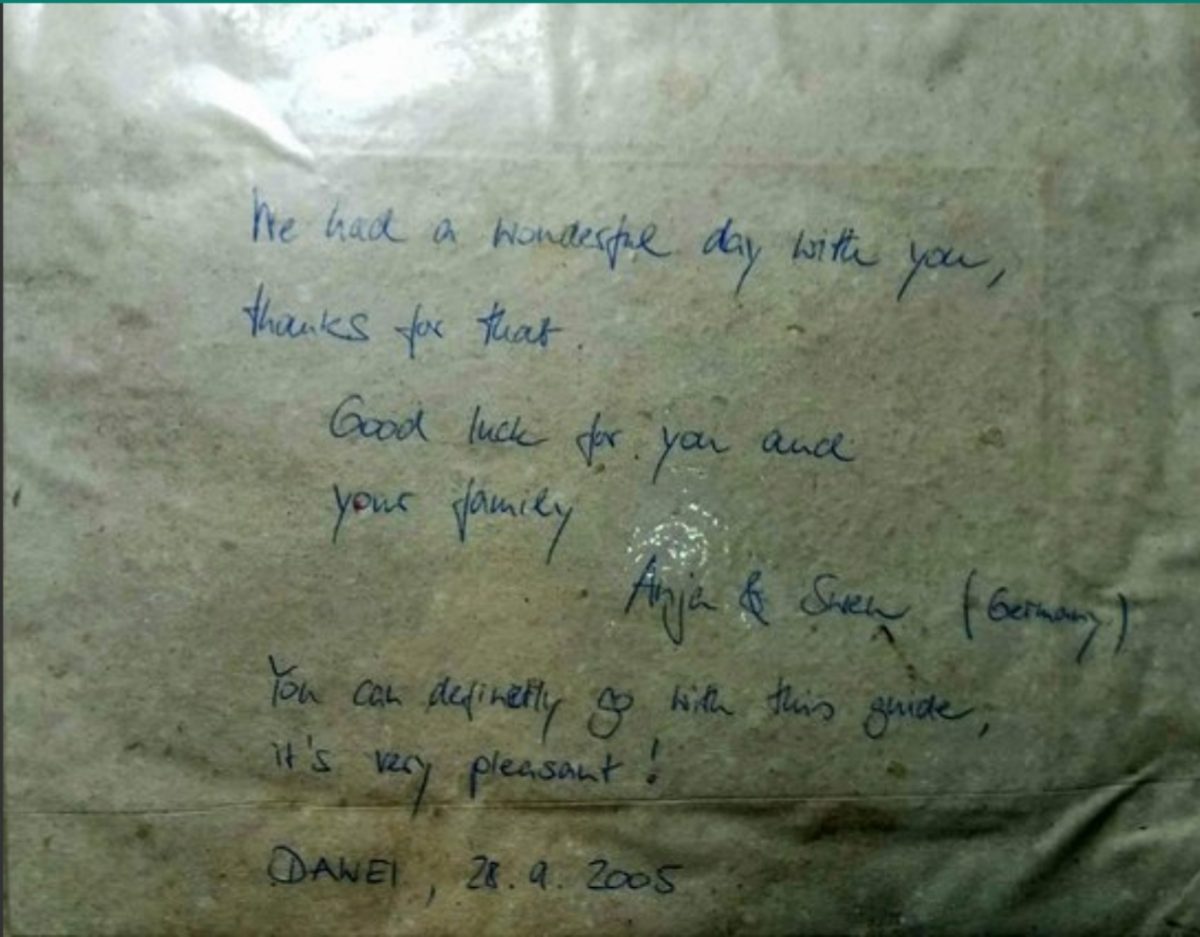 We had a wonderful day with you,
thanks for that.
Good luck for you and
your family
Anja & Swen (Germany)
You can definetly go with this guide,
it's very pleasant!
DAWEI, 28.9.2005